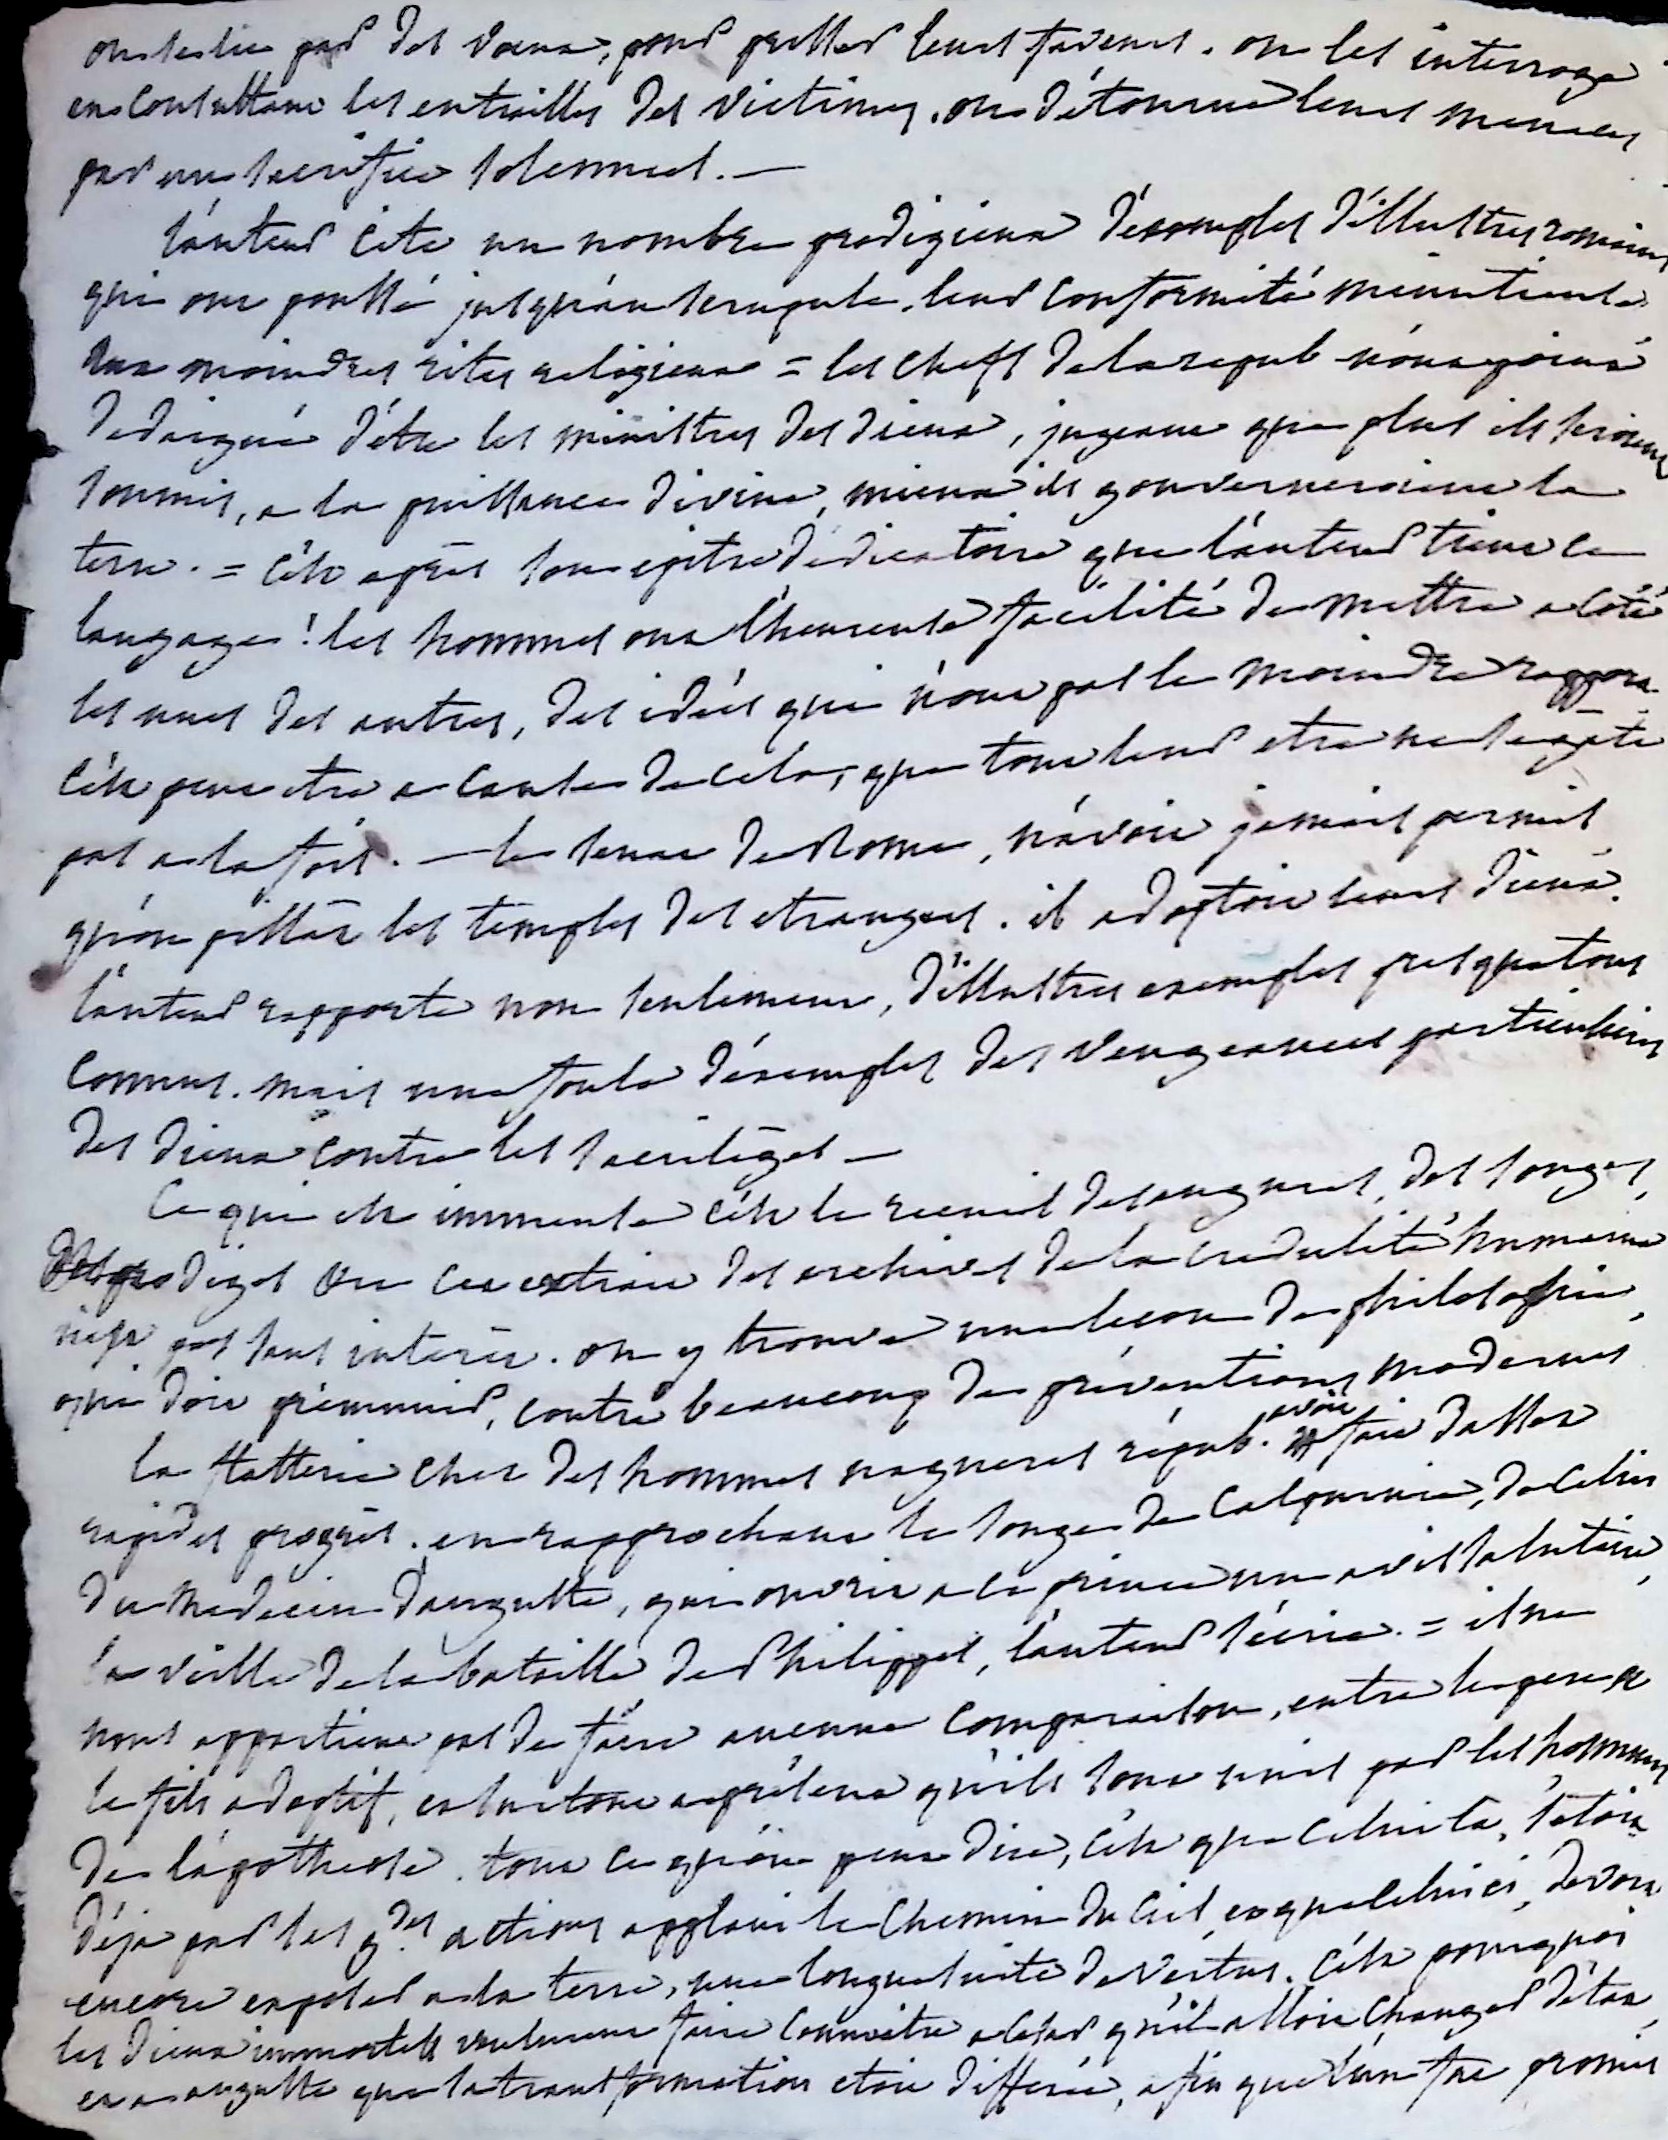 on les lie par des voeux, pour presser leurs faveurs. on les interroge
en consultant les entrailles des victimes. on détourne leurs menaces
par un sacrifice solemnel. —
l'auteur cite un nombre prodigieux d'éxemples d'illustres romains
qui ont poussé jusqu'au scrupule, leur conformité minutieuse
aux moindres rites religieux = les chefs de la repub n'ont point
dedaigné d'être les ministres des dieux, jugeant que plus ils seroient
soumis, a la puissance divine, mieux ils gouverneroient la
terre. = c'est après son epitre dédicatoire que l'auteur tient ce
langage! les hommes ont l'heureuse facilité de mettre a côté
les unes des autres, des idées qui n'ont pas le moindre rapport.
c'est peut etre a cause de cela, que tout leur etre ne se gâte
pas a la fois. — le senat de Rome, n'avoit jamais permis
qu'on pillât les temples des etrangers. il adoptoit leurs dieux.
l'auteur rapporte non seulement, d'illustres exemples presque tous
connus. mais une foule d'éxemples des vengeances particulieres
des dieux contre les sacrilèges —
Ce qui est immense c'est le recueil des augures, des songes,
des prodiges cet extrait des archives de la credulité humaine
n'est pas sans interêt. on y trouve une lecon de philosophie,
qui doit prémunir, contre beaucoup de préventions modernes
la flatterie chez des hommes nagueres répub. avoit fait d'assez
rapides progrès. en rapprochant le songe de Calpurnie, de celui
du medecin d'auguste, qui ouvrit a ce prince un avis salutaire,
la veille de la bataille de Philippes, l'auteur s'écrie. = il ne
nous appartient pas de faire aucune comparaison, entre le pere et
le fils adoptif, et surtout a présent qu'ils sont unis par les honneurs
de l'apotheose. tout ce qu'on peut dire, c'est que celui la, s'étoit
déja par ses g.des actions applani le chemin du ciel, et que celui ci, devoit
encore exposer a la terre, une longue suite de vertus. c'est pourquoi
les dieux immortels voulurent faire connoitre a César qu'il alloit changer d'état,
et a auguste que la transformation etoit differée, afin que l'un fut promis